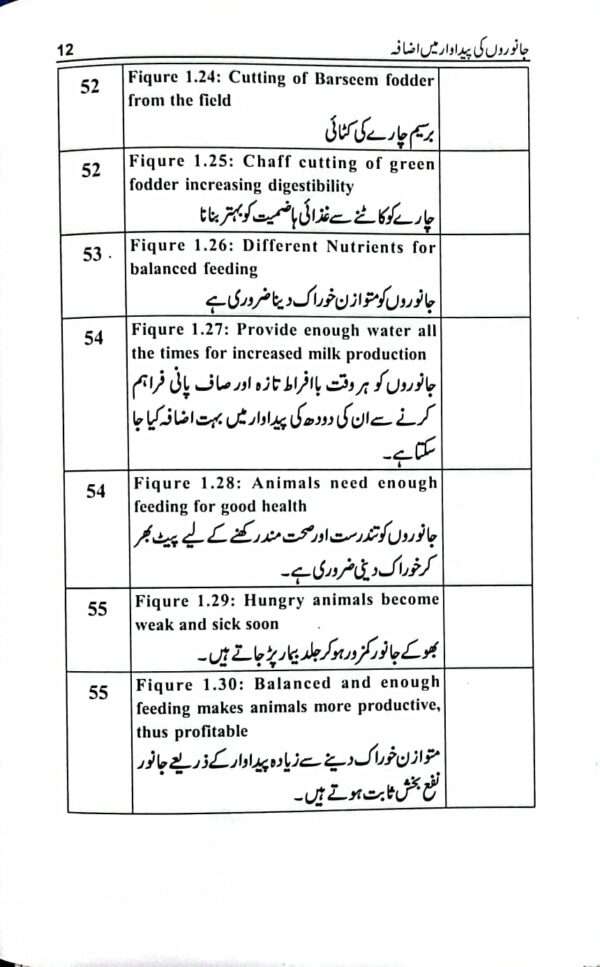 12
جانوروں کی پیداوار میں اضافہ
52
Fiqure 1.24: Cutting of Barseem fodder
from the field
برسیم چارے کی کٹائی
52
Fiqure 1.25: Chaff cutting of green
fodder increasing digestibility
چارے کو کاٹنے سے غذائی ہاضمیت کو بہتر بنانا
53
Fiqure 1.26: Different Nutrients for
balanced feeding
جانوروں کو متوازن خوراک دینا ضروری ہے
54
Fiqure 1.27: Provide enough water all
the times for increased milk production
جانوروں کو ہر وقت باافراط تازہ اور صاف پانی فراہم
کرنے سے ان کی دودھ کی پیداوار میں بہت اضافہ کیا جا
سکتا ہے۔
54
Fiqure 1.28: Animals need enough
feeding for good health
جانوروں کو تندرست اور صحت مند رکھنے کے لیے پیٹ بھر
کر خوراک دینی ضروری ہے۔
55
Fiqure 1.29: Hungry animals become
weak and sick soon
بھوکے جانور کمزور ہو کر جلد بیمار پڑ جاتے ہیں۔
55
Fiqure 1.30: Balanced and enough
feeding makes animals more productive,
thus profitable
متوازن خوراک دینے سے زیادہ پیداوار کے ذریعے جانور
نفع بخش ثابت ہوتے ہیں۔